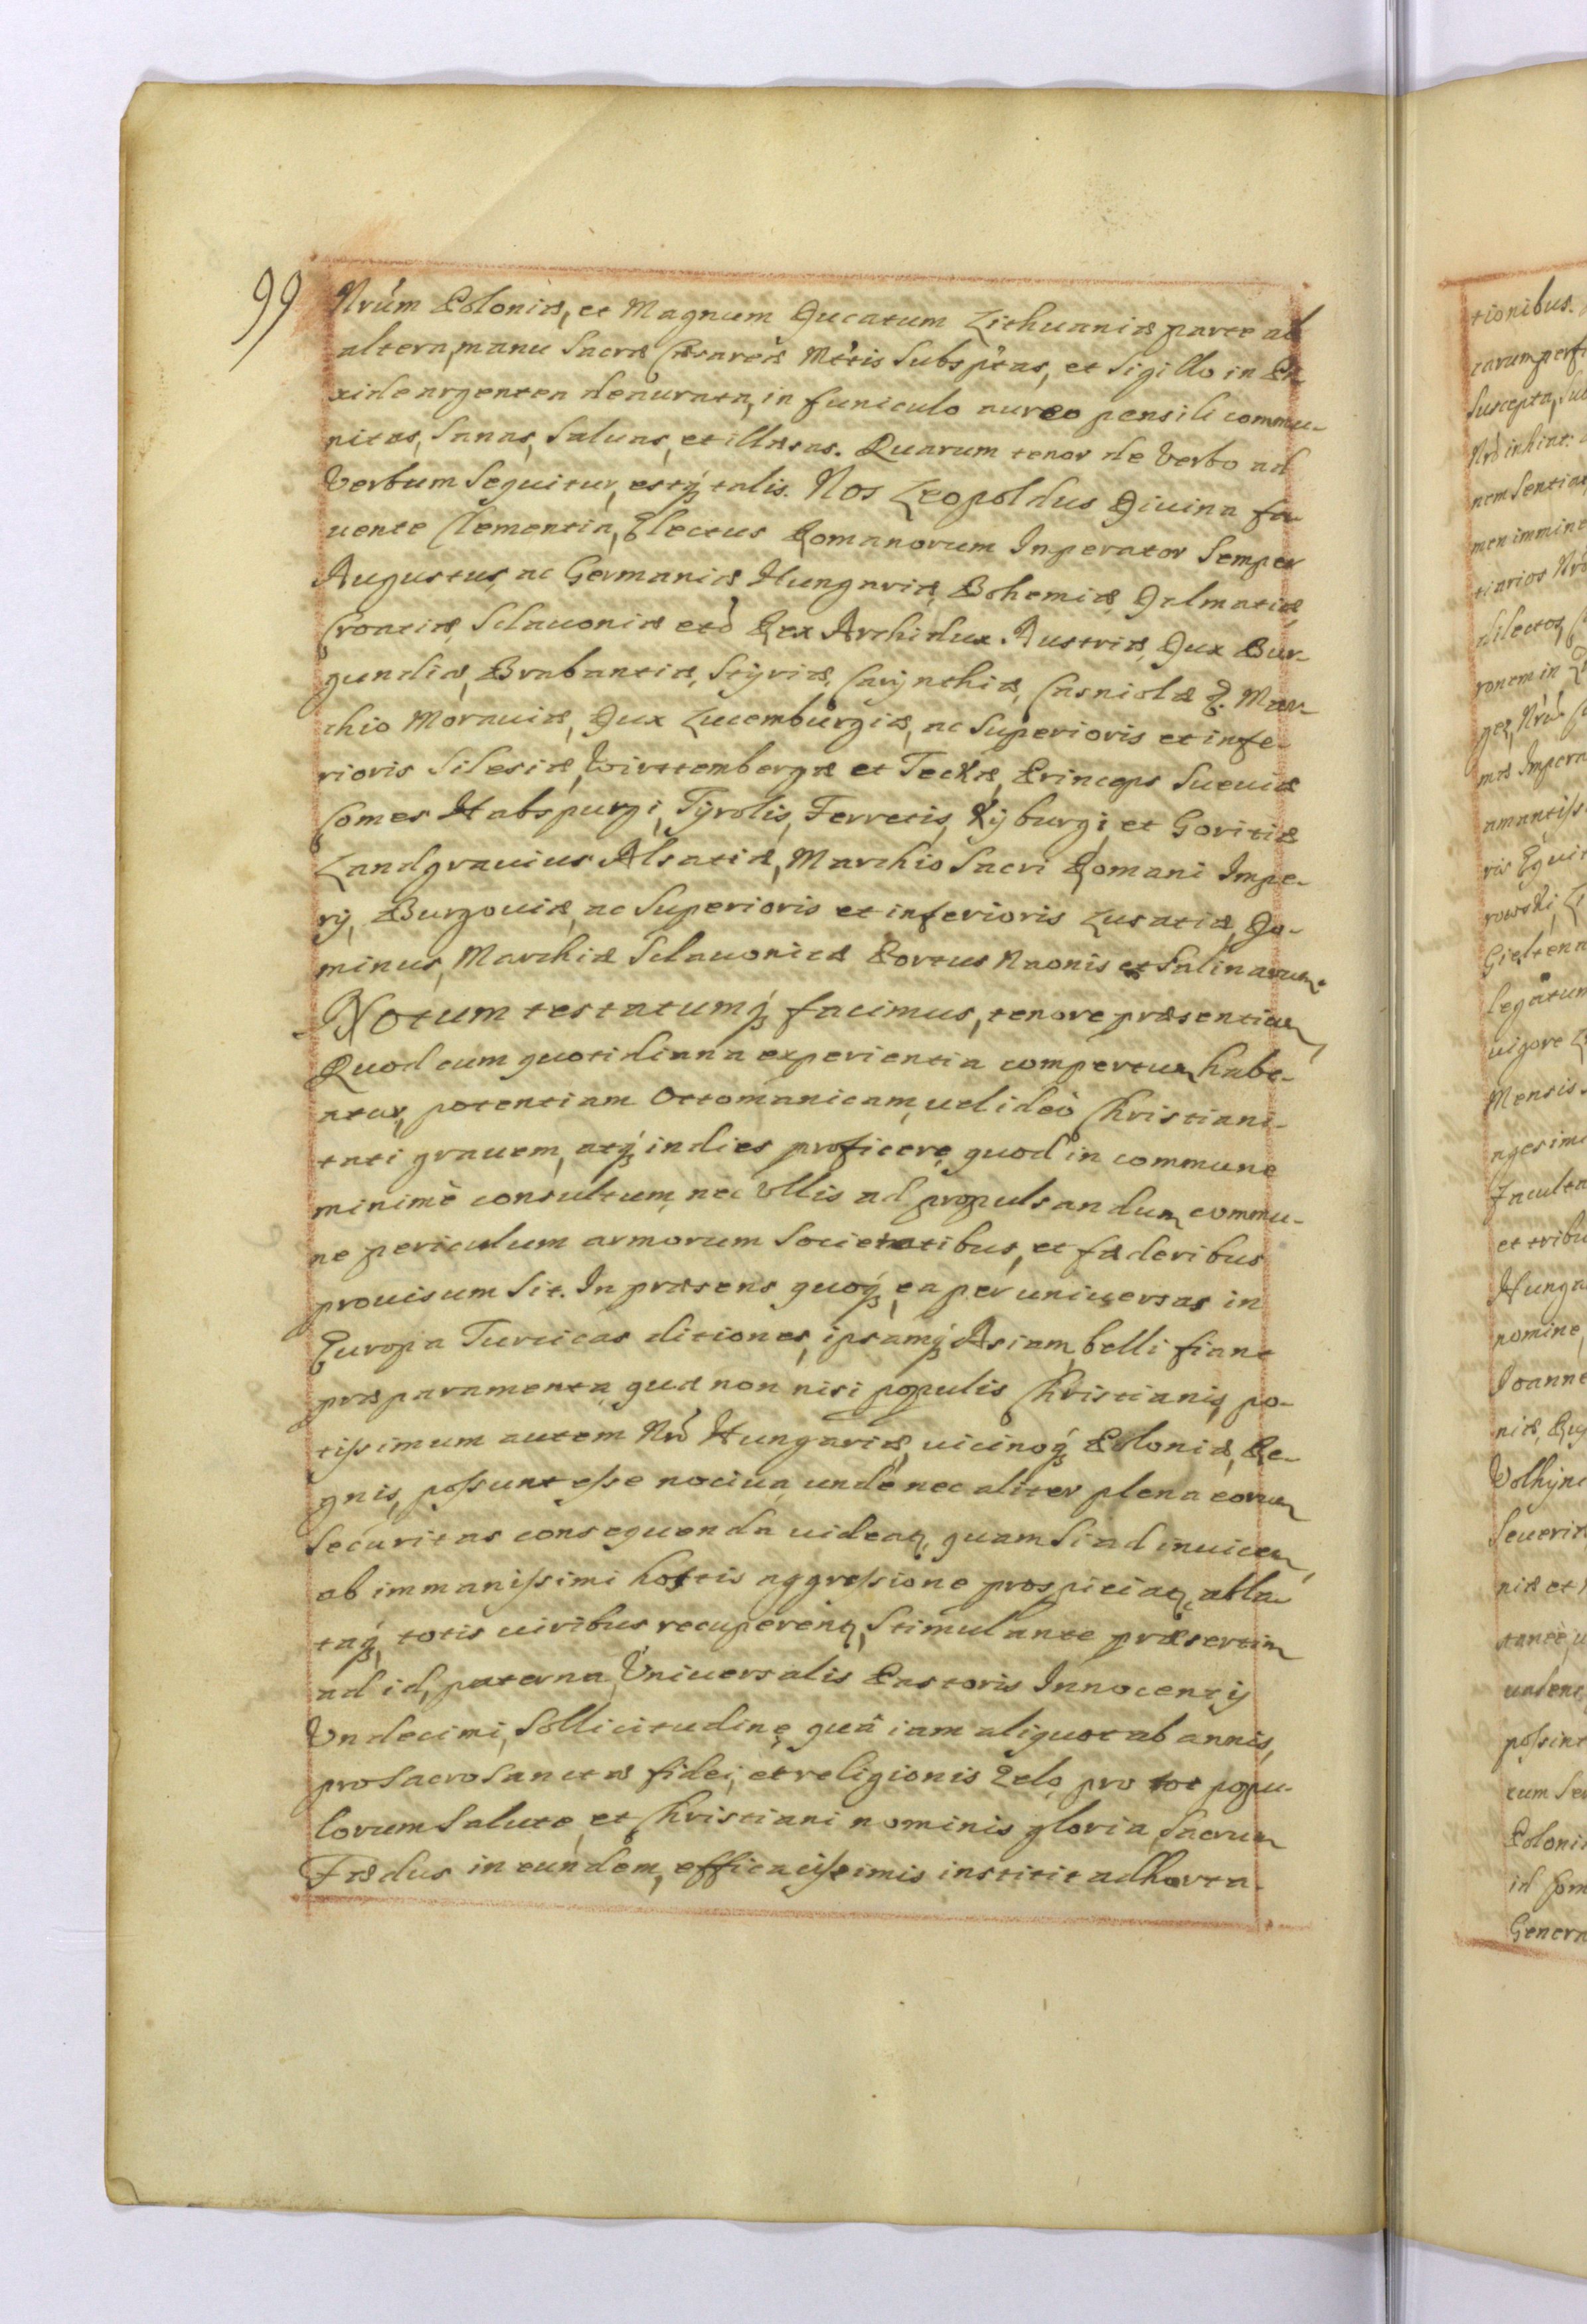 99
Nrûm Poloniæ, et Magnum Ducatum Lithuaniæ parte ab
altera, manu Sacræ Cæsareæ Mttis Subsptas, et Sigillo in Pi-
xide argentea deaurata, in funiculo aureo pensili commu-
nitas, Sanas, Saluas, et illæsas. Quarum tenor de Verbo ad
Verbum Sequitur, estq́ talis. Nos Leopoldus Diuina fa-
uente Clementia, Electus Romanorum Inperator Semper
Augustus, ac Germaniæ, Hungariæ, Bohemiæ, Dalmatiæ,
Croatiæ, Sclauoniæ etc̀ Rex Archidux Austriæ, Dux Bur-
gundiæ, Brabantiæ, Styriæ, Carynthiæ, Carniolæ &. Mar-
chio Morauiæ, Dux Lucemburgiæ, ac Superioris et infe-
rioris Silesiæ, Wirttembergæ et Teckæ, Princeps Sueuiæ
Comes Habspurgi, Tyrolis, Ferretis, Kyburgi, et Goritiæ
Landgrauius Alsatiæ, Marchio Sacri Romani Impe-
rij, Burgouiæ, ac Superioris et inferioris Lusatiæ, Do-
minus, Marchiæ Sclauonicæ Portus Naonis et Salinarum.
Notum testatumq́ facimus, tenore præsentium,
Quod cum quotidiana experientia compertum habe-
atur, potentiam Ottomanicam, uel ideò Christiani-
tati grauem, atq́ indies proficere, quod in commune
minimè consultum, nec Vllis ad propulsandum commu-
ne periculum armorum Societatibus, et fæderibus
prouisum Sit. In præsens quoq́, ea per uniuersas in
Europa Turcicas ditiones, ipsamq́ Asiam, belli fiant
præparamenta, quæ non nisi populis Christianis, po-
tissimum autem Nrô Hungariæ, uicinoq́ Poloniæ, Re-
gnis, possunt esse nociua, unde nec aliter plena eorum
Securitas consequenda uideaʒ, quam Si ad inuicem,
ab immanissimi hostis aggressione prospiciaʒ, abla-
taq́, totis uiribus recuperenʒ, Stimulante præsertim
ad id, paterna Vniuersalis Pastoris Innocentij
Vndecimi, Sollicitudine, quâ iam aliquot ab annis,
pro Sacro Sanctæ fidei, et religionis Zelo, pro tot popu-
lorum Salute, et Christiani nominis gloria, Sacrum
Fædus in eundem, efficacissimis institit adhorta-
tionibus.
Suscepta,
nem Sentiat
dilectos,
ronem in
mæ Impera
amantiss
ris Equit
rowski,
legatum
uigore
Mensis
ngesimi
Faculta
et tribu
Hunga
nomine,
Joanne
niæ,
Volhyni
Seueriæ
niæ et
possint
cum Se
Poloni
id Com
Genera